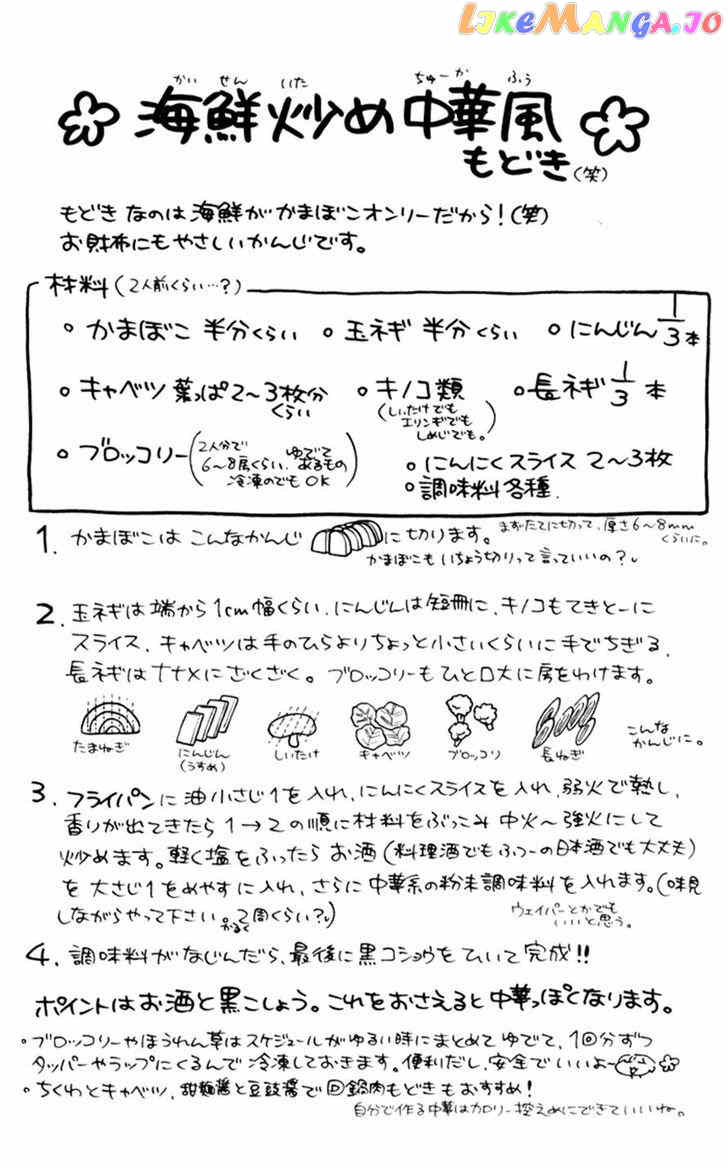 LIKEMANGA.IO
かいせんいた ちゅーか ふう
海鮮炒め中華風
もどき(笑)
もどきなのは海鮮がかまぼこオンリーだから!(笑)
お財布にもやさしいかんじです。
材料(2人前くらい…?)
◦かまぼこ 半分くらい ◦玉ネギ 半分くらい ◦にんじん1/3本
◦キャベツ 葉っぱ2～3枚分くらい ◦キノコ類(しいたけでもエリンギでもしめじでも。) ◦長ネギ1/3本
◦ブロッコリー(2人分で6～8房くらい。ゆでてあるもの 冷凍のでもOK)
◦にんにくスライス 2～3枚
◦調味料各種.
1. かまぼこは こんなかんじ に切ります。まずたてに切って、厚さ6～8mmくらいに。
かまぼこもいちょう切りって言っていいの?
2. 玉ネギは端から1cm幅くらい、にんじんは短冊に、キノコもてきとーに
スライス、キャベツは手のひらよりちょっと小さいくらいに手でちぎる、
長ネギはナナメにざくざく。ブロッコリーもひと口大に房をわけます。
たまねぎ にんじん(うすめ) しいたけ キャベツ ブロッコリ 長ねぎ こんなかんじに。
3. フライパンに油小さじ1を入れ、にんにくスライスを入れ、弱火で熱し、
香りが出てきたら1→2の順に材料をぶっこみ中火～強火にして
炒めます。軽く塩をふったらお酒(料理酒でもふつーの日本酒でも大丈夫)
を大さじ1をめやすに入れ、さらに中華系の粉末調味料を入れます。(味見
しながらやって下さい。かるく2周くらい?)
ウェイパーとかでもいいと思う。
4. 調味料がなじんだら、最後に黒コショウをひいて完成!!
ポイントはお酒と黒こしょう。これをおさえると中華っぽくなります。
◦ブロッコリーやほうれん草はスケジュールがゆるい時にまとめてゆでて、1回分ずつ
タッパーやラップにくるんで冷凍しておきます。便利だし、安全でいいよー
◦ちくわとキャベツ、甜麺醤と豆豉醤で回鍋肉もどきもおすすめ!
自分で作る中華はカロリー控えめにできていいね。